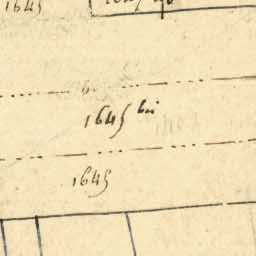 1645
1645 bis
1645